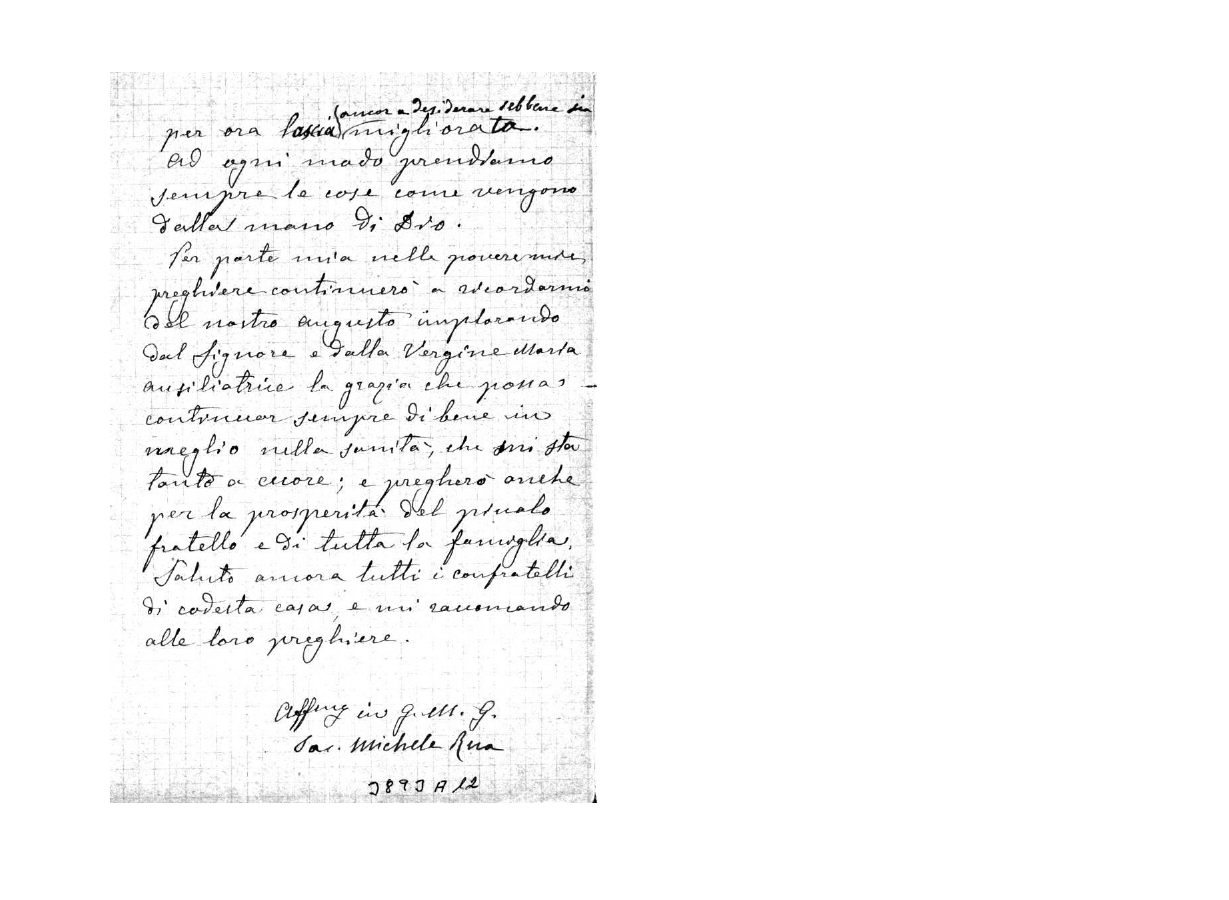 (ancora desiderare sebbene sia
per ora lascia migliorata.
Ad ogni modo prendiamo
sempre le cose come vengono
dalla mano di Dio.
Per parte mia nelle povere mie
preghiere continuerò a ricordarmi
del nostro Augusto implorando
dal Signore e dalla Vergine Maria
Ausiliatrice la grazia che possa
continuar sempre di bene in
meglio nella sanità, che mi sta
tanto a cuore; e pregherò anche
per la prosperità del piccolo
fratello e di tutta la famiglia.
Saluto ancora tutti i confratelli
di codesta casa, e mi raccomando
alle loro preghiere.
Aff.mo in G. M. G.
Sac. Michele Rua
3893 A 12